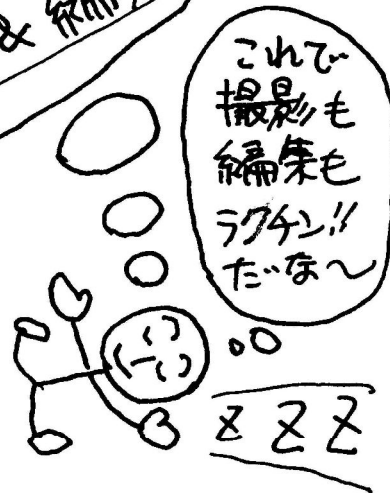 これで
撮影も
編集も
ラクチン!!
だな〜
Z Z Z